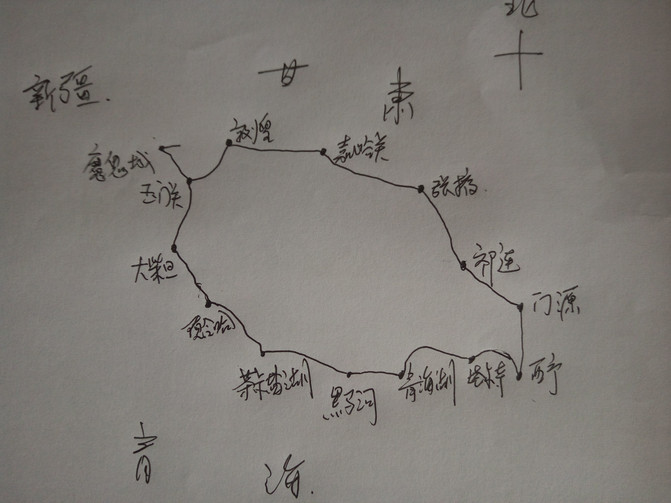 北
新疆.
甘
肃
敦煌
嘉峪关
魔鬼城
玉门关
张掖.
大柴旦
祁连
门源
德令哈
茶卡盐湖
黑马河
青海湖
塔尔寺
西宁
青
海.